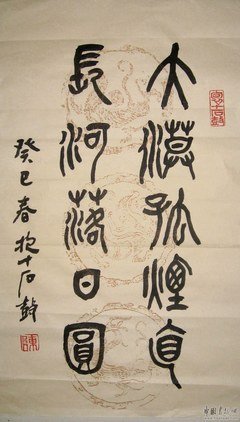 大漠孤煙直
長河落日圓
癸巳春抱十石鼓